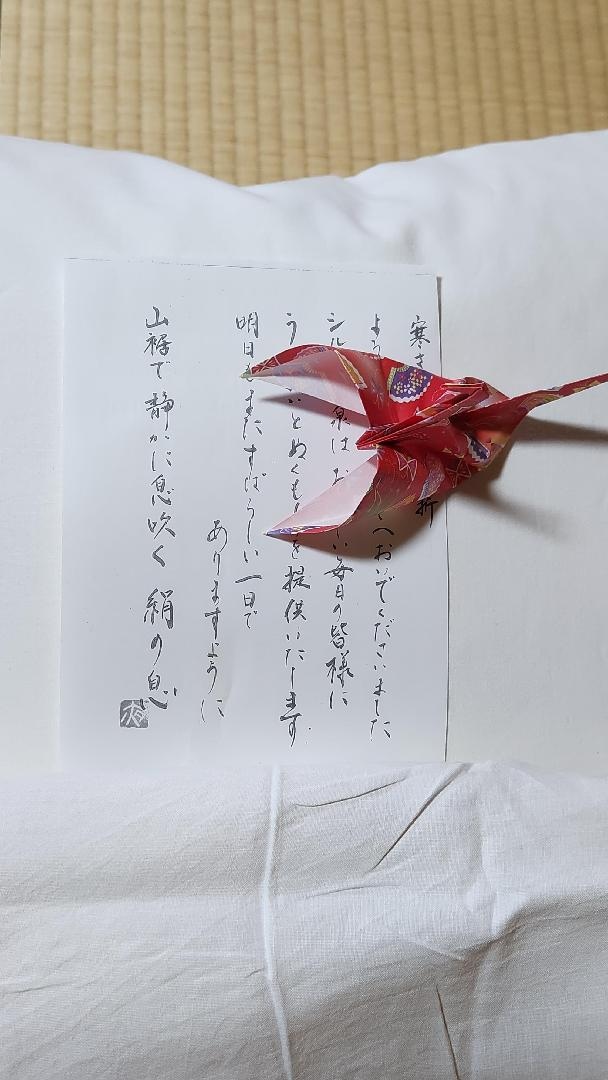 寒さ 折
よう へおいでくださいました
シル 泉は お しい毎日の皆様に
う いとぬくも を提供いたします
明日もまたすばらしい一日で
ありますように
山裾で 静かに息吹く 絹の息